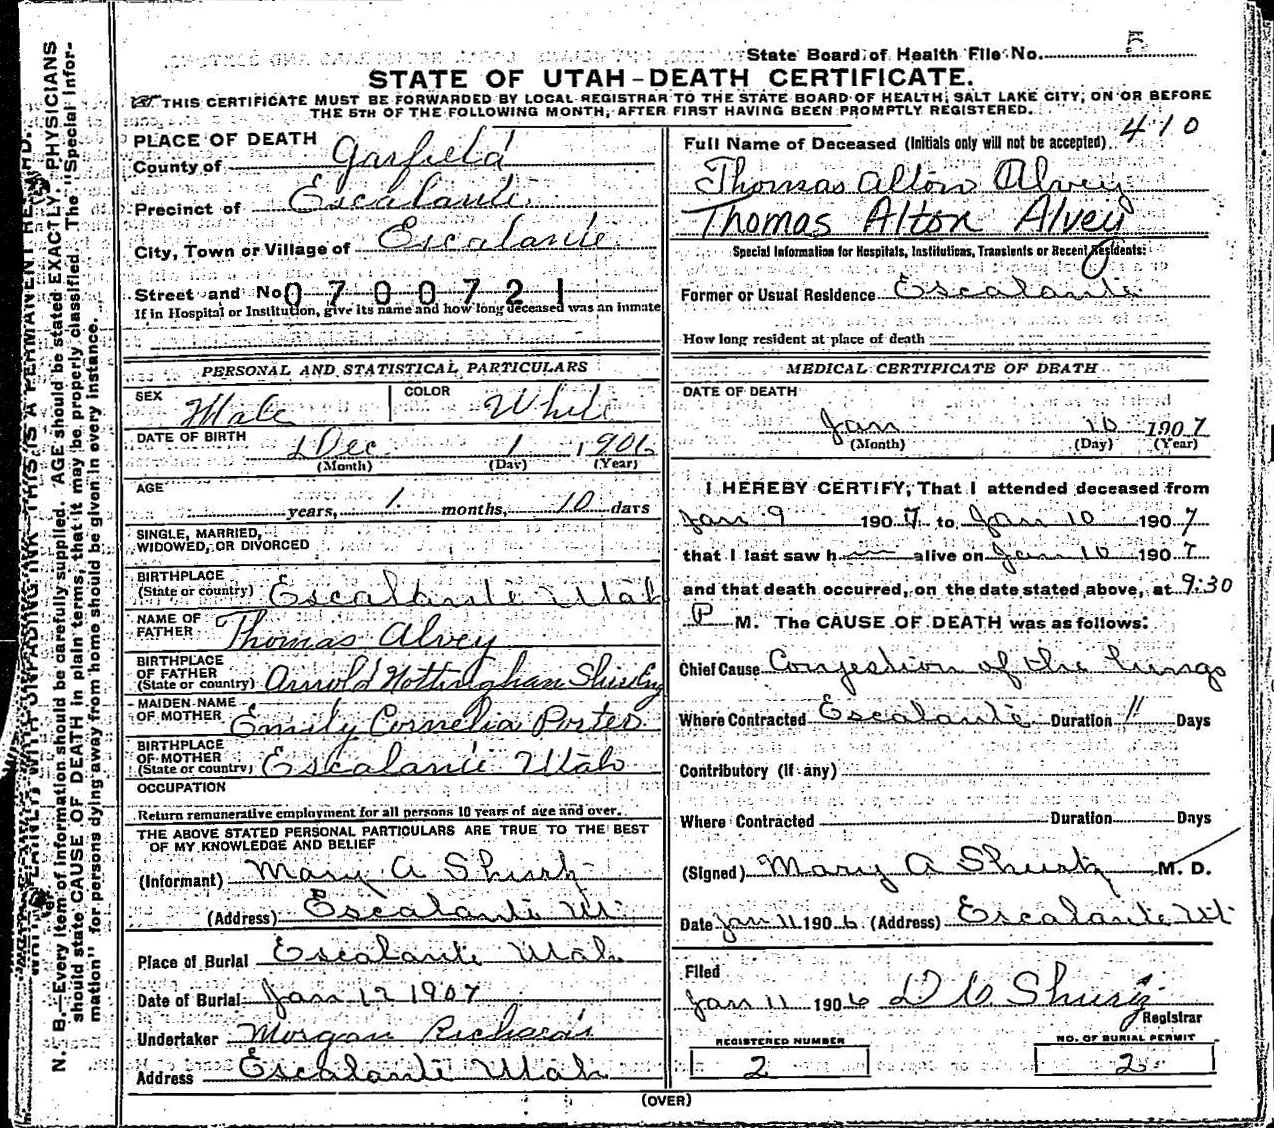 State Board of Health File No. 5
STATE OF UTAH-DEATH CERTIFICATE.
THIS CERTIFICATE MUST BE FORWARDED BY LOCAL REGISTRAR TO THE STATE BOARD OF HEALTH, SALT LAKE CITY, ON OR BEFORE
THE 5TH OF THE FOLLOWING MONTH, AFTER FIRST HAVING BEEN PROMPTLY REGISTERED.
PLACE OF DEATH
County of Garfield
Precinct of Escalante
City, Town or Village of Escalante
Street and No. 0700721
If in Hospital or Institution, give its name and how long deceased was an inmate
PERSONAL AND STATISTICAL PARTICULARS
SEX Male COLOR White
DATE OF BIRTH Dec 1 1906
(Month) (Day) (Year)
AGE
years, 1 months, 10 days
SINGLE, MARRIED,
WIDOWED, OR DIVORCED
BIRTHPLACE
(State or country) Escalante Utah
NAME OF
FATHER Thomas Alvey
BIRTHPLACE
OF FATHER
(State or country) Arnold Nottinghan
MAIDEN NAME
OF MOTHER Emily Cornelia Porter
BIRTHPLACE
OF MOTHER
(State or country) Escalante Utah
OCCUPATION
Return remunerative employment for all persons 10 years of age and over.
THE ABOVE STATED PERSONAL PARTICULARS ARE TRUE TO THE BEST
OF MY KNOWLEDGE AND BELIEF
(Informant) Mary A Shurtz
(Address) Escalante Ut
Place of Burial Escalante Utah
Date of Burial Jan 12 1907
Undertaker Morgan Richards
Address Escalante Utah
410
Full Name of Deceased (Initials only will not be accepted)
Thomas Alton Alvey
Thomas Alton Alvey
Special Information for Hospitals, Institutions, Transients or Recent Residents:
Former or Usual Residence Escalante
How long resident at place of death
MEDICAL CERTIFICATE OF DEATH
DATE OF DEATH
Jan 10 1907
(Month) (Day) (Year)
I HEREBY CERTIFY, That I attended deceased from
Jan 9 1907 to Jan 10 1907
that I last saw h alive on Jan 10 1907
and that death occurred, on the date stated above, at 9:30
P M. The CAUSE OF DEATH was as follows:
Chief Cause Congestion of the Lungs
Where Contracted Escalante Duration 11 Days
Contributory (If any)
Where Contracted Duration Days
(Signed) Mary A Shurtz M. D.
Date Jan 11 1906 (Address) Escalante Ut
Filed
Jan 11 1906 D C Shurtz
Registrar
REGISTERED NUMBER
2
NO. OF BURIAL PERMIT
2
(OVER)
THIS IS A PERMANENT RECORD.
N. B.—Every item of information should be carefully supplied. AGE should be stated EXACTLY. PHYSICIANS
should state CAUSE OF DEATH in plain terms, that it may be properly classified. The "Special Infor-
mation" for persons dying away from home should be given in every instance.